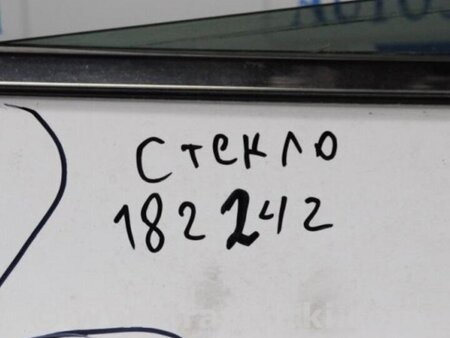 стекло
182242